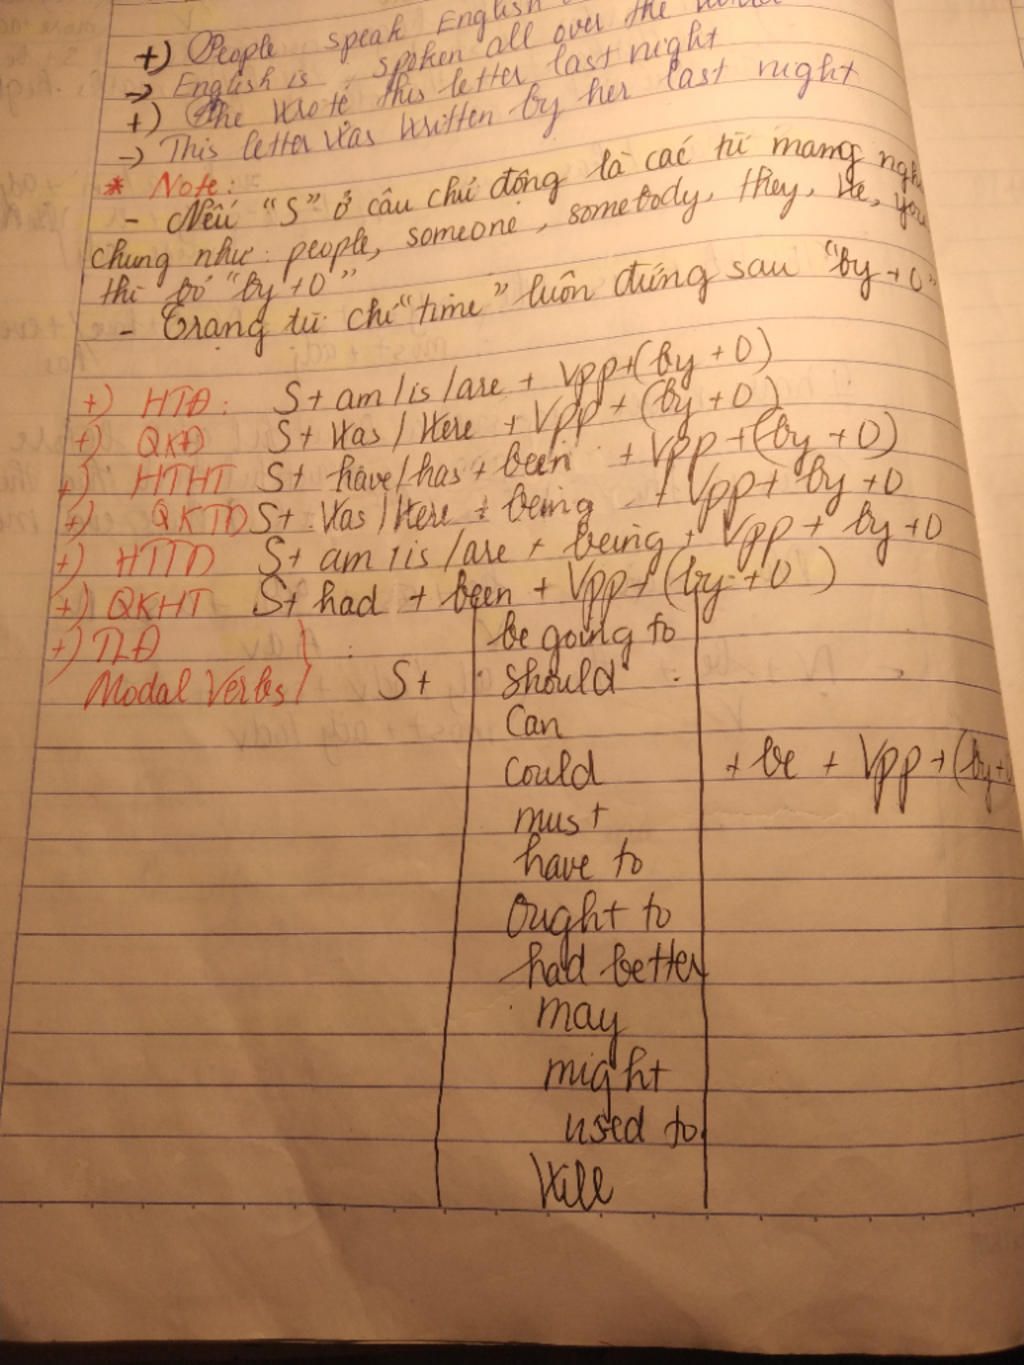 +) People speak English
→ English is spoken all over the world
+) She wrote this letter last night
→ This letter was written by her last night
* Note:
- Nếu "S" ở câu chủ động là các từ mang
chung như: people, someone, somebody, they, we, you
thì bỏ "by + O"
- Trạng từ chỉ "time" luôn đứng sau "by + O"
+) HTĐ: S + am / is / are + Vpp + (by + O)
+) QKĐ S + was / were + Vpp + (by + O)
+) HTHT S + have / has + been + Vpp + (by + O)
+) QKTD S + was / were + being + Vpp + by + O
+) HTTD S + am / is / are + being + Vpp + by + O
+) QKHT S + had + been + Vpp + (by + O)
+) TLĐ : be going to
Modal Verbs S + should
Can
Could + be + Vpp + (by +
must
have to
Ought to
had better
may
might
used to
Will